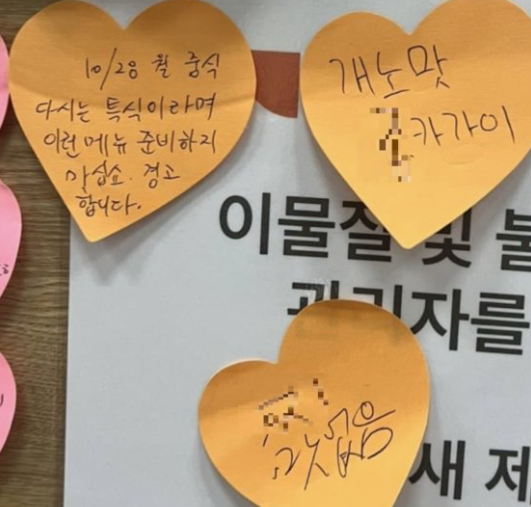 10/28 월 중식
다시는 특식이라며
이런 메뉴 준비하지
마십쇼. 경고
합니다.
개노맛
카가이
이물질 및 불
관리자를
맛없음
새 제